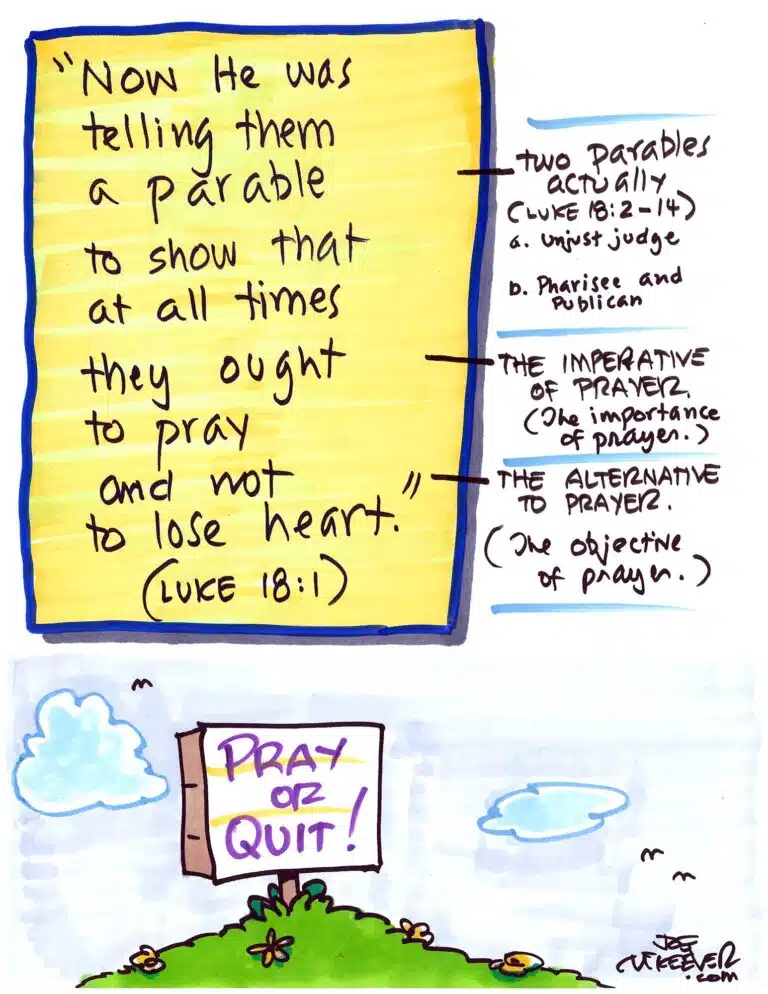 "NOW He was
telling them
a parable
to show that
at all times
they ought
to pray
and not
to lose heart."
(LUKE 18:1)
two parables
actually
(LUKE 18:2-14)
a. unjust judge
b. Pharisee and
Publican
THE IMPERATIVE
OF PRAYER.
(The importance
of prayer.)
THE ALTERNATIVE
TO PRAYER.
(The objective
of prayer.)
PRAY
OR
QUIT!
JOE
McKEEVER
.com